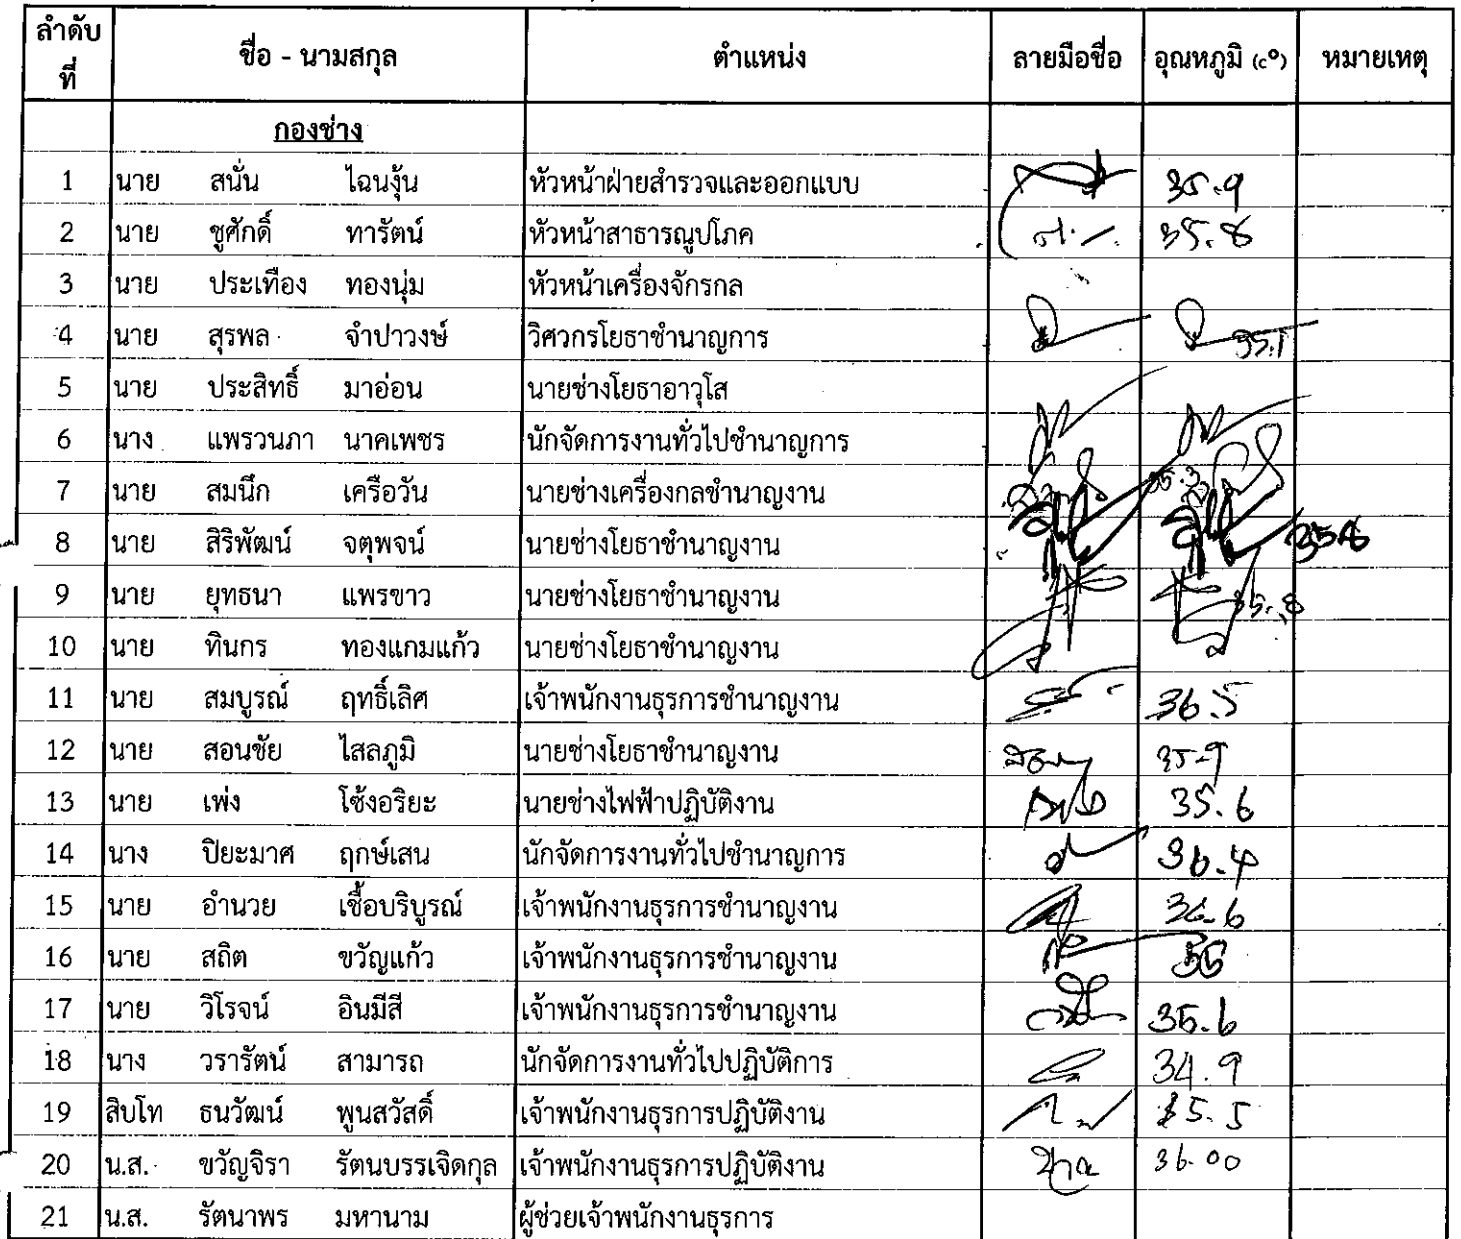 ลำดับที่ ชื่อ - นามสกุล ตำแหน่ง ลายมือชื่อ อุณหภูมิ (c°) หมายเหตุ
กองช่าง
1 นาย สนั่น ไฉนงุ้น หัวหน้าฝ่ายสำรวจและออกแบบ 35.9
2 นาย ชูศักดิ์ ทารัตน์ หัวหน้าสาธารณูปโภค 35.8
3 นาย ประเทือง ทองนุ่ม หัวหน้าเครื่องจักรกล
4 นาย สุรพล จำปาวงษ์ วิศวกรโยธาชำนาญการ 35.1
5 นาย ประสิทธิ์ มาอ่อน นายช่างโยธาอาวุโส
6 นาง แพรวนภา นาคเพชร นักจัดการงานทั่วไปชำนาญการ
7 นาย สมนึก เครือวัน นายช่างเครื่องกลชำนาญงาน 35.3
8 นาย สิริพัฒน์ จตุพจน์ นายช่างโยธาชำนาญงาน
9 นาย ยุทธนา แพรขาว นายช่างโยธาชำนาญงาน 35.8
10 นาย ทินกร ทองแกมแก้ว นายช่างโยธาชำนาญงาน
11 นาย สมบูรณ์ ฤทธิ์เลิศ เจ้าพนักงานธุรการชำนาญงาน 36.5
12 นาย สอนชัย ไสลภูมิ นายช่างโยธาชำนาญงาน 35-9
13 นาย เพ่ง โช้งอริยะ นายช่างไฟฟ้าปฏิบัติงาน 35.6
14 นาง ปิยะมาศ ฤกษ์เสน นักจัดการงานทั่วไปชำนาญการ 36.4
15 นาย อำนวย เชื้อบริบูรณ์ เจ้าพนักงานธุรการชำนาญงาน 36.6
16 นาย สถิต ขวัญแก้ว เจ้าพนักงานธุรการชำนาญงาน
17 นาย วิโรจน์ อินมีสี เจ้าพนักงานธุรการชำนาญงาน 35.6
18 นาง วรารัตน์ สามารถ นักจัดการงานทั่วไปปฏิบัติการ 34.9
19 สิบโท ธนวัฒน์ พูนสวัสดิ์ เจ้าพนักงานธุรการปฏิบัติงาน 35.5
20 น.ส. ขวัญจิรา รัตนบรรเจิดกุล เจ้าพนักงานธุรการปฏิบัติงาน 36.00
21 น.ส. รัตนาพร มหานาม ผู้ช่วยเจ้าพนักงานธุรการ